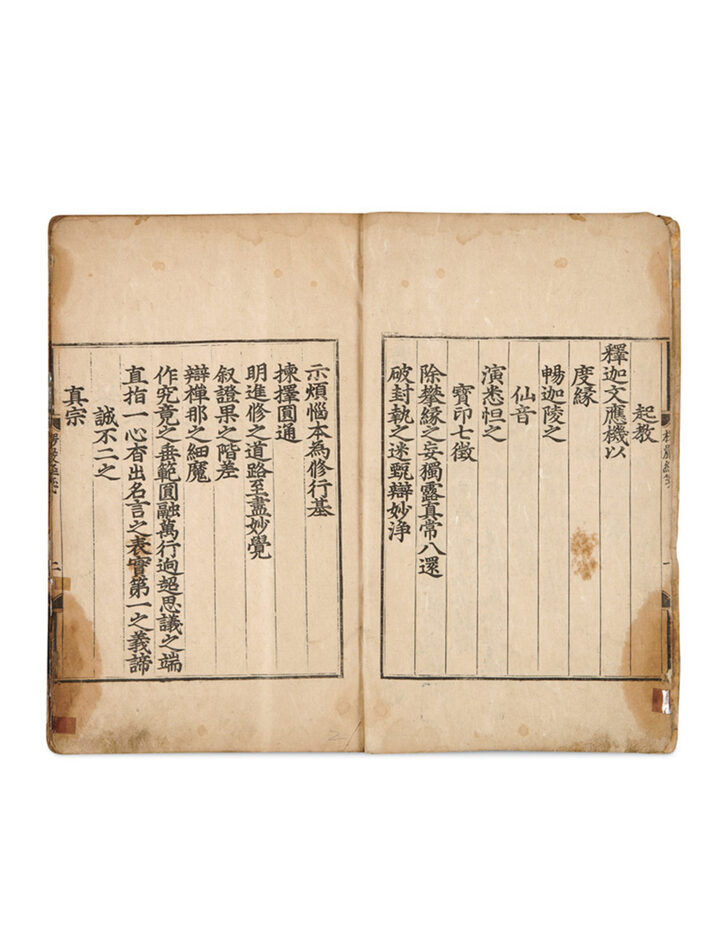 起教
釋迦文應機以
度緣
暢迦陵之
仙音
演悉怛之
寶印七徵
除攀緣之妄獨露真常八還
破封執之迷甄辯妙淨
示煩惱本為修行基
揀擇圓通
明進修之道路至盡妙覺
叙證果之階差
辯禪那之細魔
作究竟之垂範圓融萬行逈超思議之端
直指一心杳出名言之表實第一之義諦
誠不二之
真宗
二
2